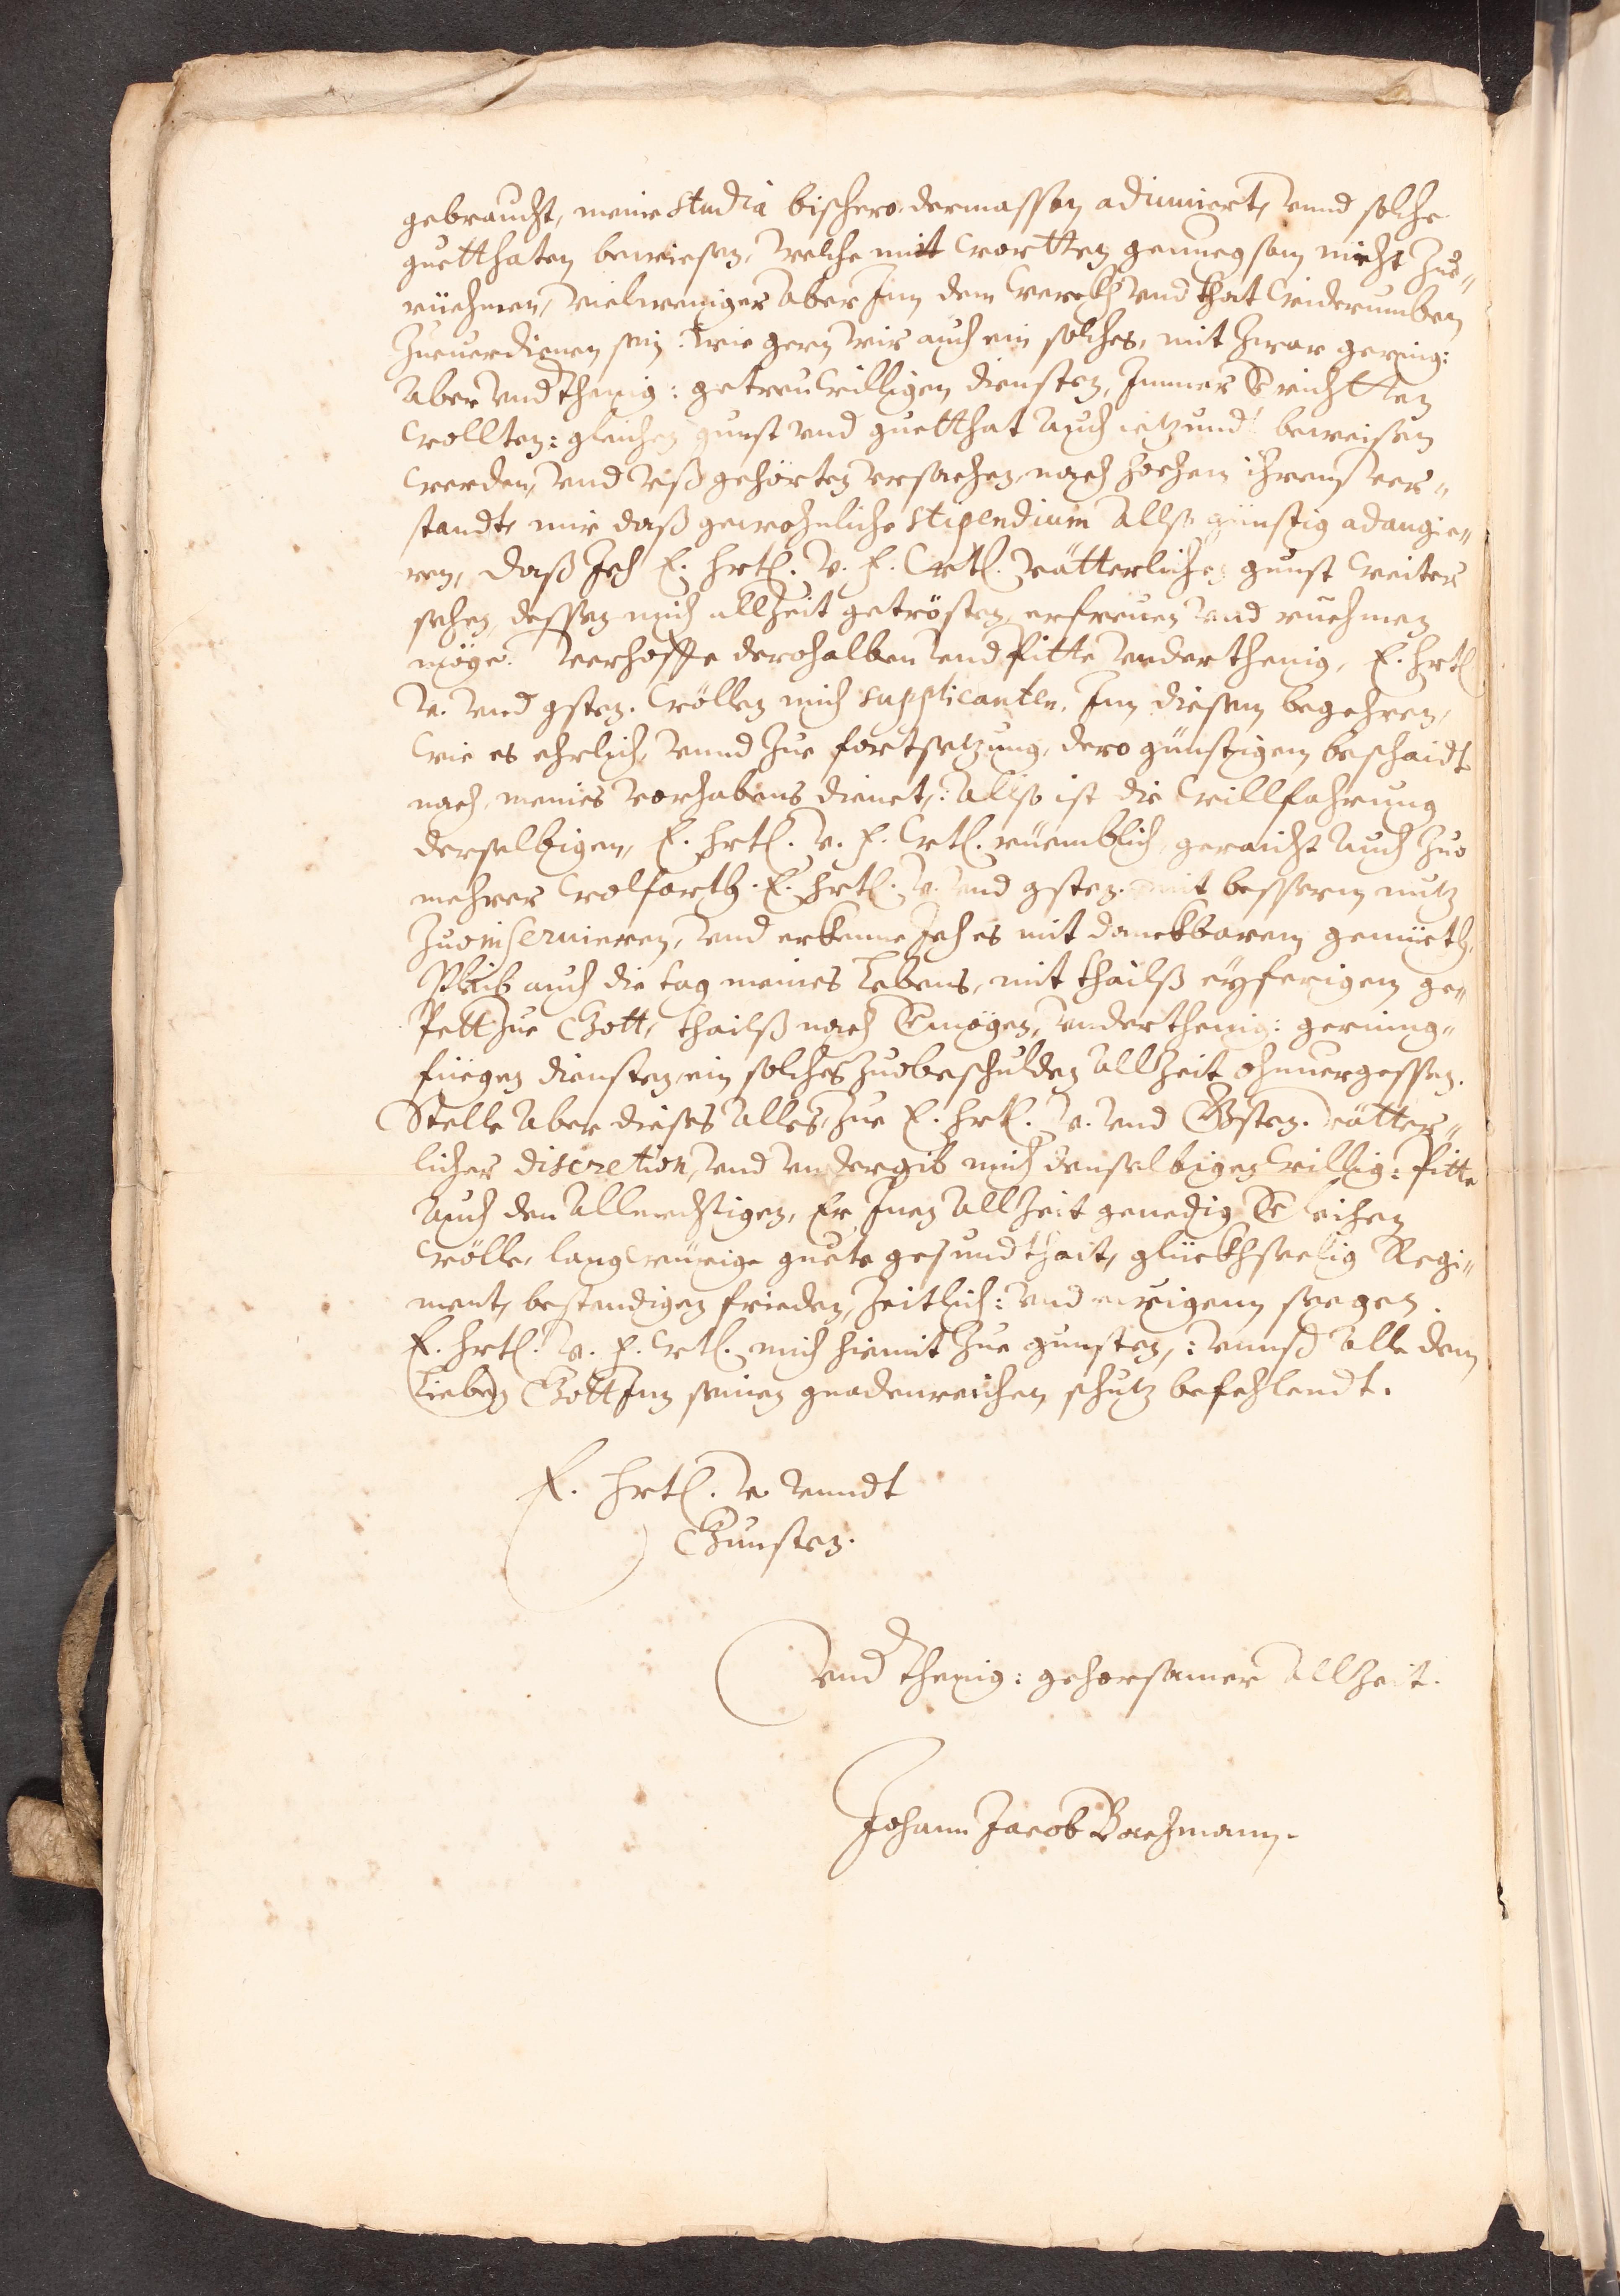 gebraucht, meine studia bischero dermassen adiuuiert, vnnd solche
guetthaten bewiesen, welche mit wortten genuegsam nicht zuo„
rüehmen, vielweniger aber Inn dem werckh vnd that widerumben
zueuerdienen sein: wie gern wir auch ein solches, mit zwar gering:
aber vnderthenig: getreuwilligen diensten, Immer verrichtten
wollten: gleichen gunst vnd guetthat auch ietzund beweisen
werden, vnd vß gehörten vrsachen, nach hochem ihrem ver„
standt, mir daß gewohnliche stipendium allso günstig adaugie„
ren, daß Ich E. Hrtl. V. F. Wrtl. vätterlichen gunst weiter
sehen, dessen mich allzeit getrösten, erfreuen vnd ruehmen
möge. Verhoffe derohalben vnd pitte vnderthenig, E. Hrtl.
V. vnd gsten. wöllen mich supplicanten, Inn diesem begehren,
wie es ehrlich, vnnd zue fortsetzung, dero günstigem beschaidt
nach, meines vorhabens dienet,: allso ist die willfahrung
derselbigen, E. Hrtl. V. F. Wrtl. rüemblich, geraicht auch zuo
mehrer wolfarth. E. Hrtl. V. vnd gsten. mit besserem nutz
zuo inseruieren, vnd erkenne Ich es mit danckbarem gemüeth,
Pleib auch die tag meines Lebens, mit thailß eyferigem ge„
Pett zue Gott, thailß nach vermögen, vnderthenig: gering„
füegen diensten, ein solches zuobeschulden allzeit ohnuergessen.
Stelle aber dieses alles, zue E. Hrtl. V. vnd Gsten. vätter„
licher discretion, vnd vndergib mich denselbigen willig: pitte
auch den allmechtigen, Er Inen allzeit genedig verleihen
wölle, langwürige guete gesundthait, glückhseelig Regi„
ment, bestendigen frieden, zeitlich: vnd ewigenn seegen.
E. Hrtl. V. F. Wrtl. mich hiemit zue gunsten,: vnnß alle dem
Lieben Gott Inn seinen gnadenreichen schutz befehlendt.
E. Hrtl. V. vnndt
Gunsten.
Vnderthenig: gehorsamer allzeit.
Johann Jacob Bachmann.